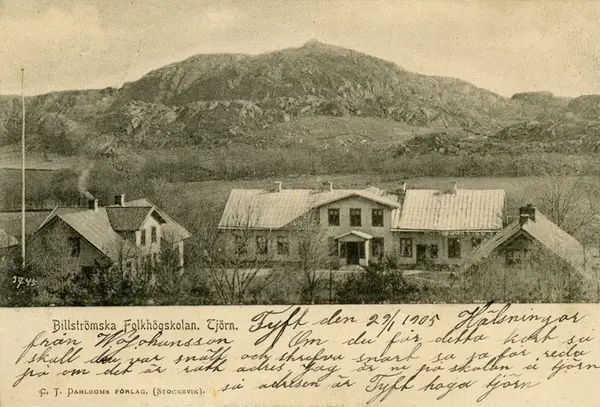 3743
Billströmska Folkhögskolan. Tjörn.
Tyft 29/1 1905 Hälsningar
från W Johansson Om du får detta kort så
skall du var snäll och skrifva snart så ja får reda
på om det är rätt adres Jag är ne på skolan a tjörn
så adrisen är Tyft haga tjörn
C. T. Dahlboms Förlag, (Stocksvik).